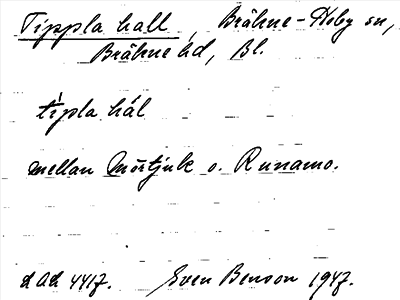 Tippla hall, Bräkne-Hoby sn,
Bräkne hd, Bl.
típla hál
mellan Mörtjuk o. Runamo.
d Ad 4417. Sven Benson 1947.